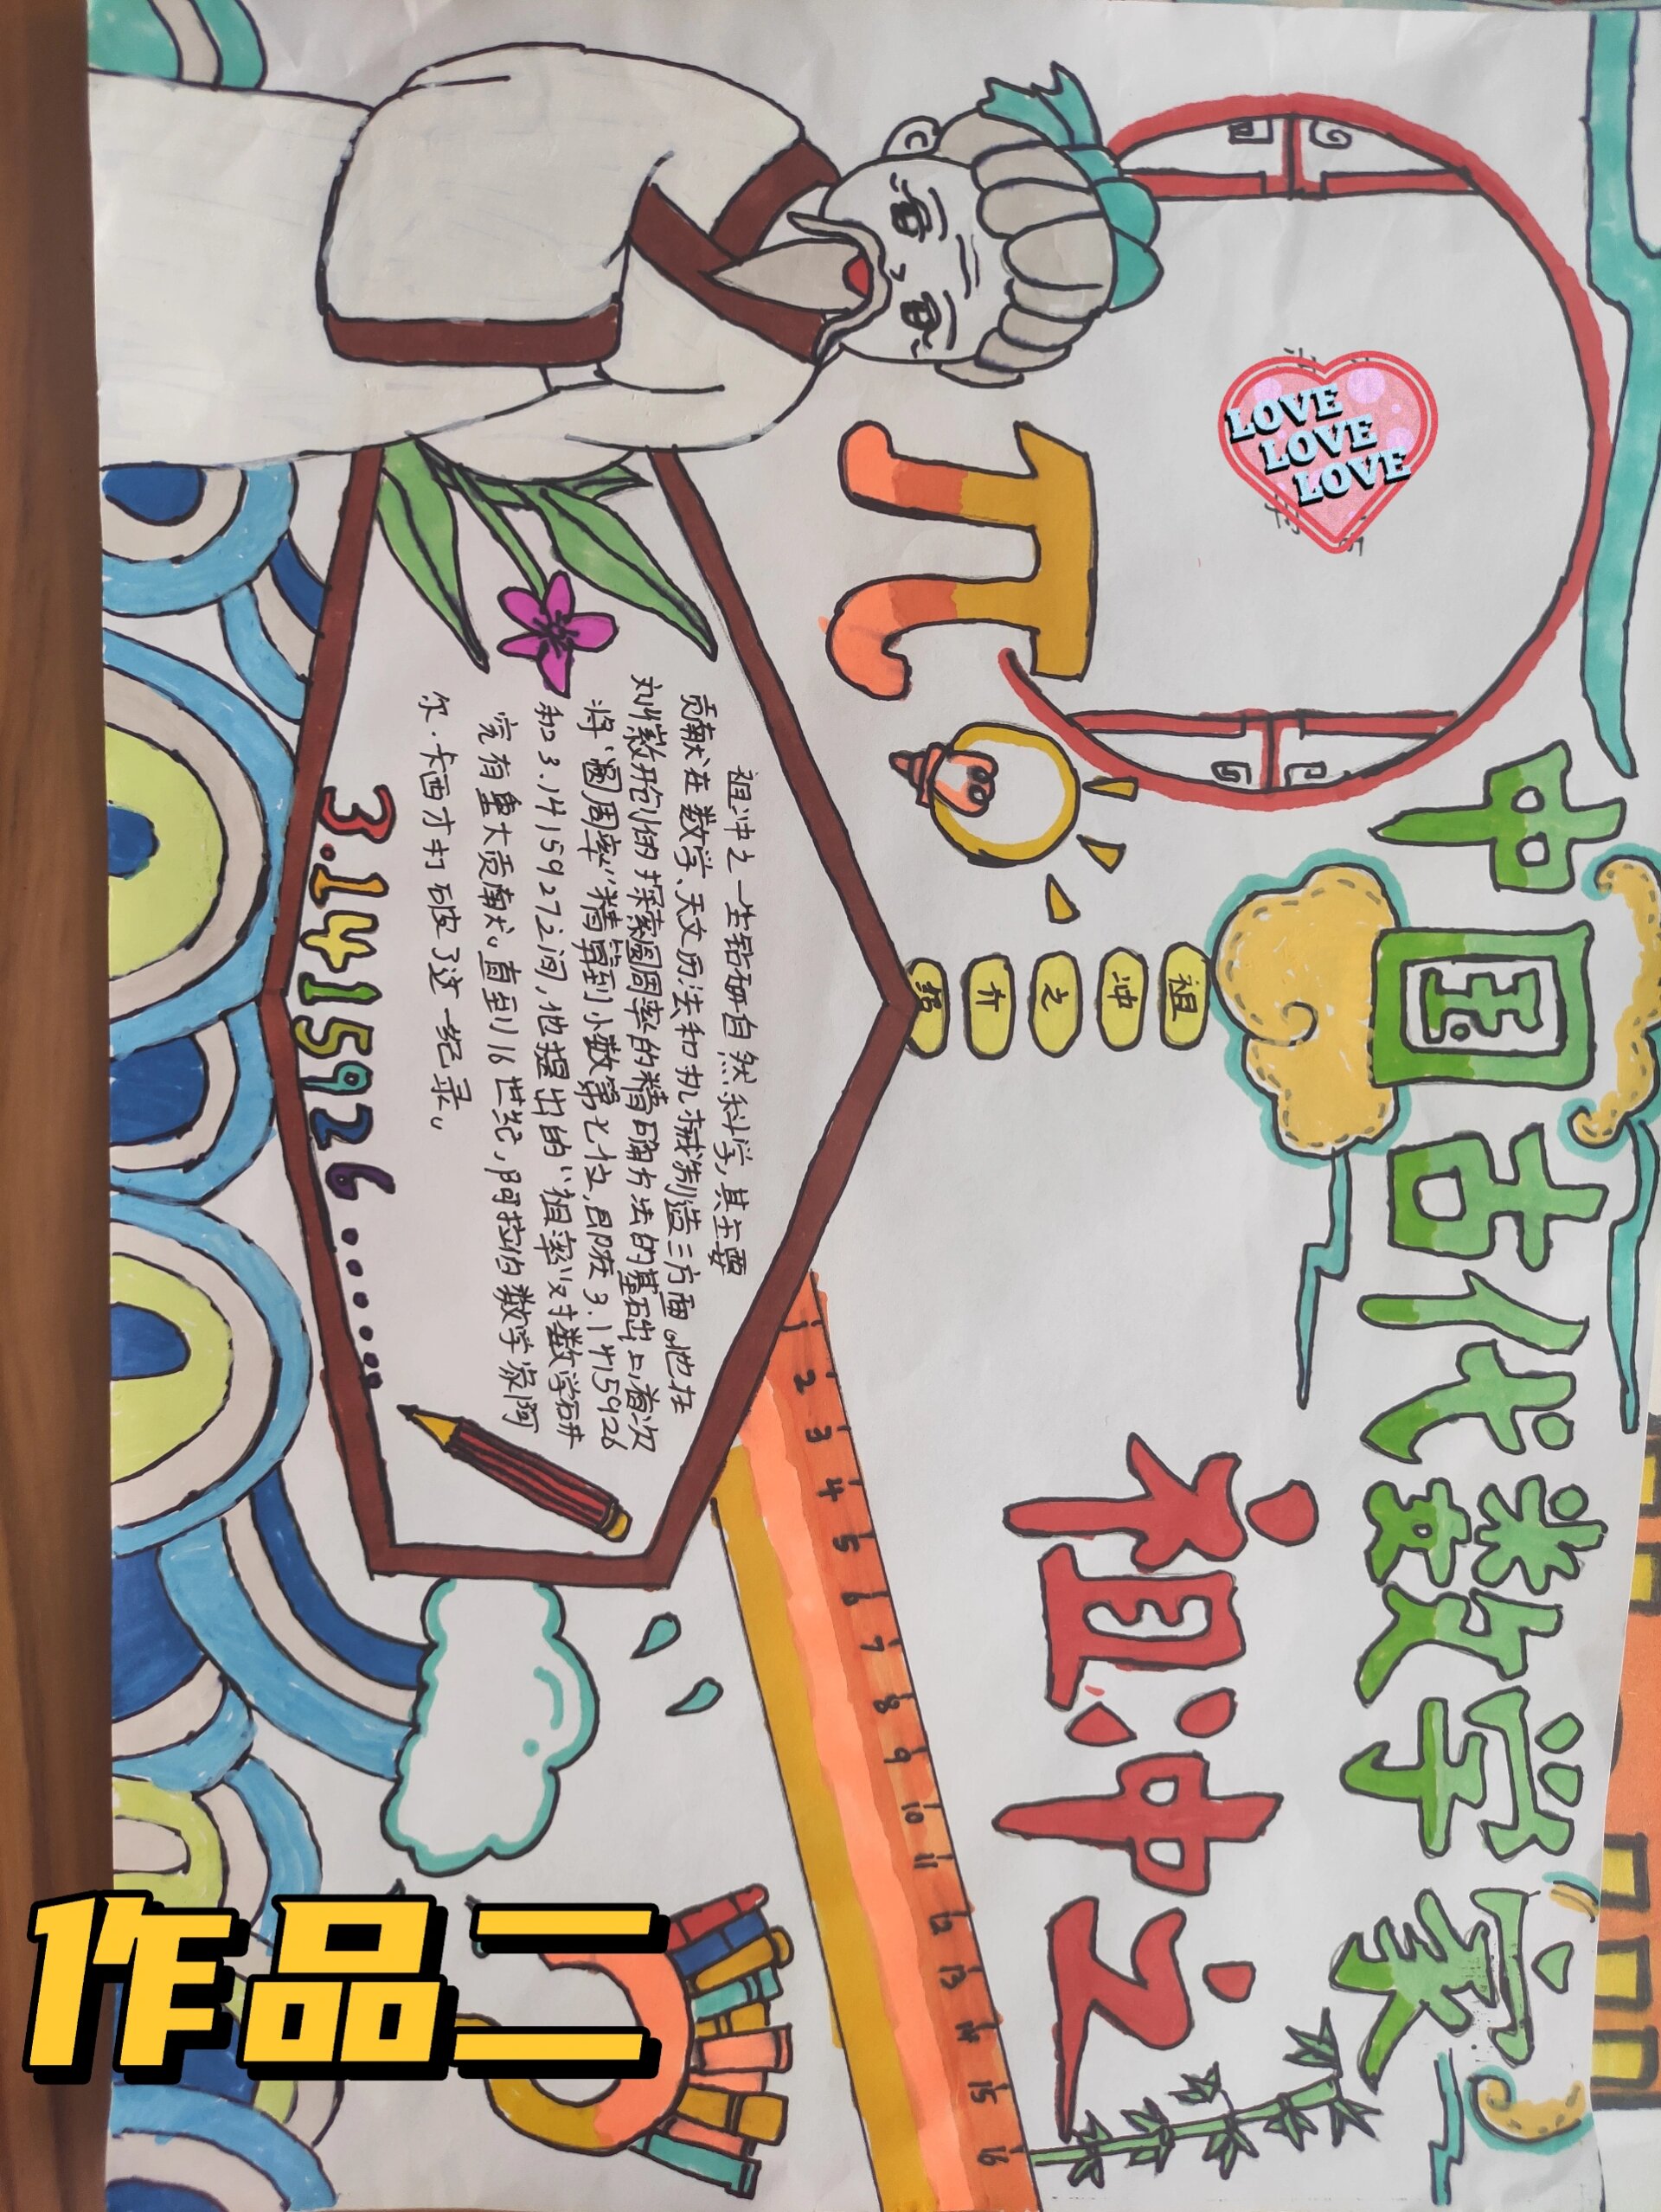 中国古代数学家
祖冲之
LOVE
LOVE
LOVE
π
祖冲之介绍
祖冲之一生钻研自然科学,其主要
贡献在数学、天文历法和机械制造三方面。他在
刘徽开创的探索圆周率的精确方法的基础上,首次
将“圆周率”精算到小数第七位,即在3.1415926
和3.1415927之间,他提出的“祖率”对数学研
究有重大贡献。直到16世纪,阿拉伯数学家阿
尔·卡西才打破了这一纪录。
3.1415926......
1 2 3 4 5 6 7 8 9 10 11 12 13 14 15 16
作品二